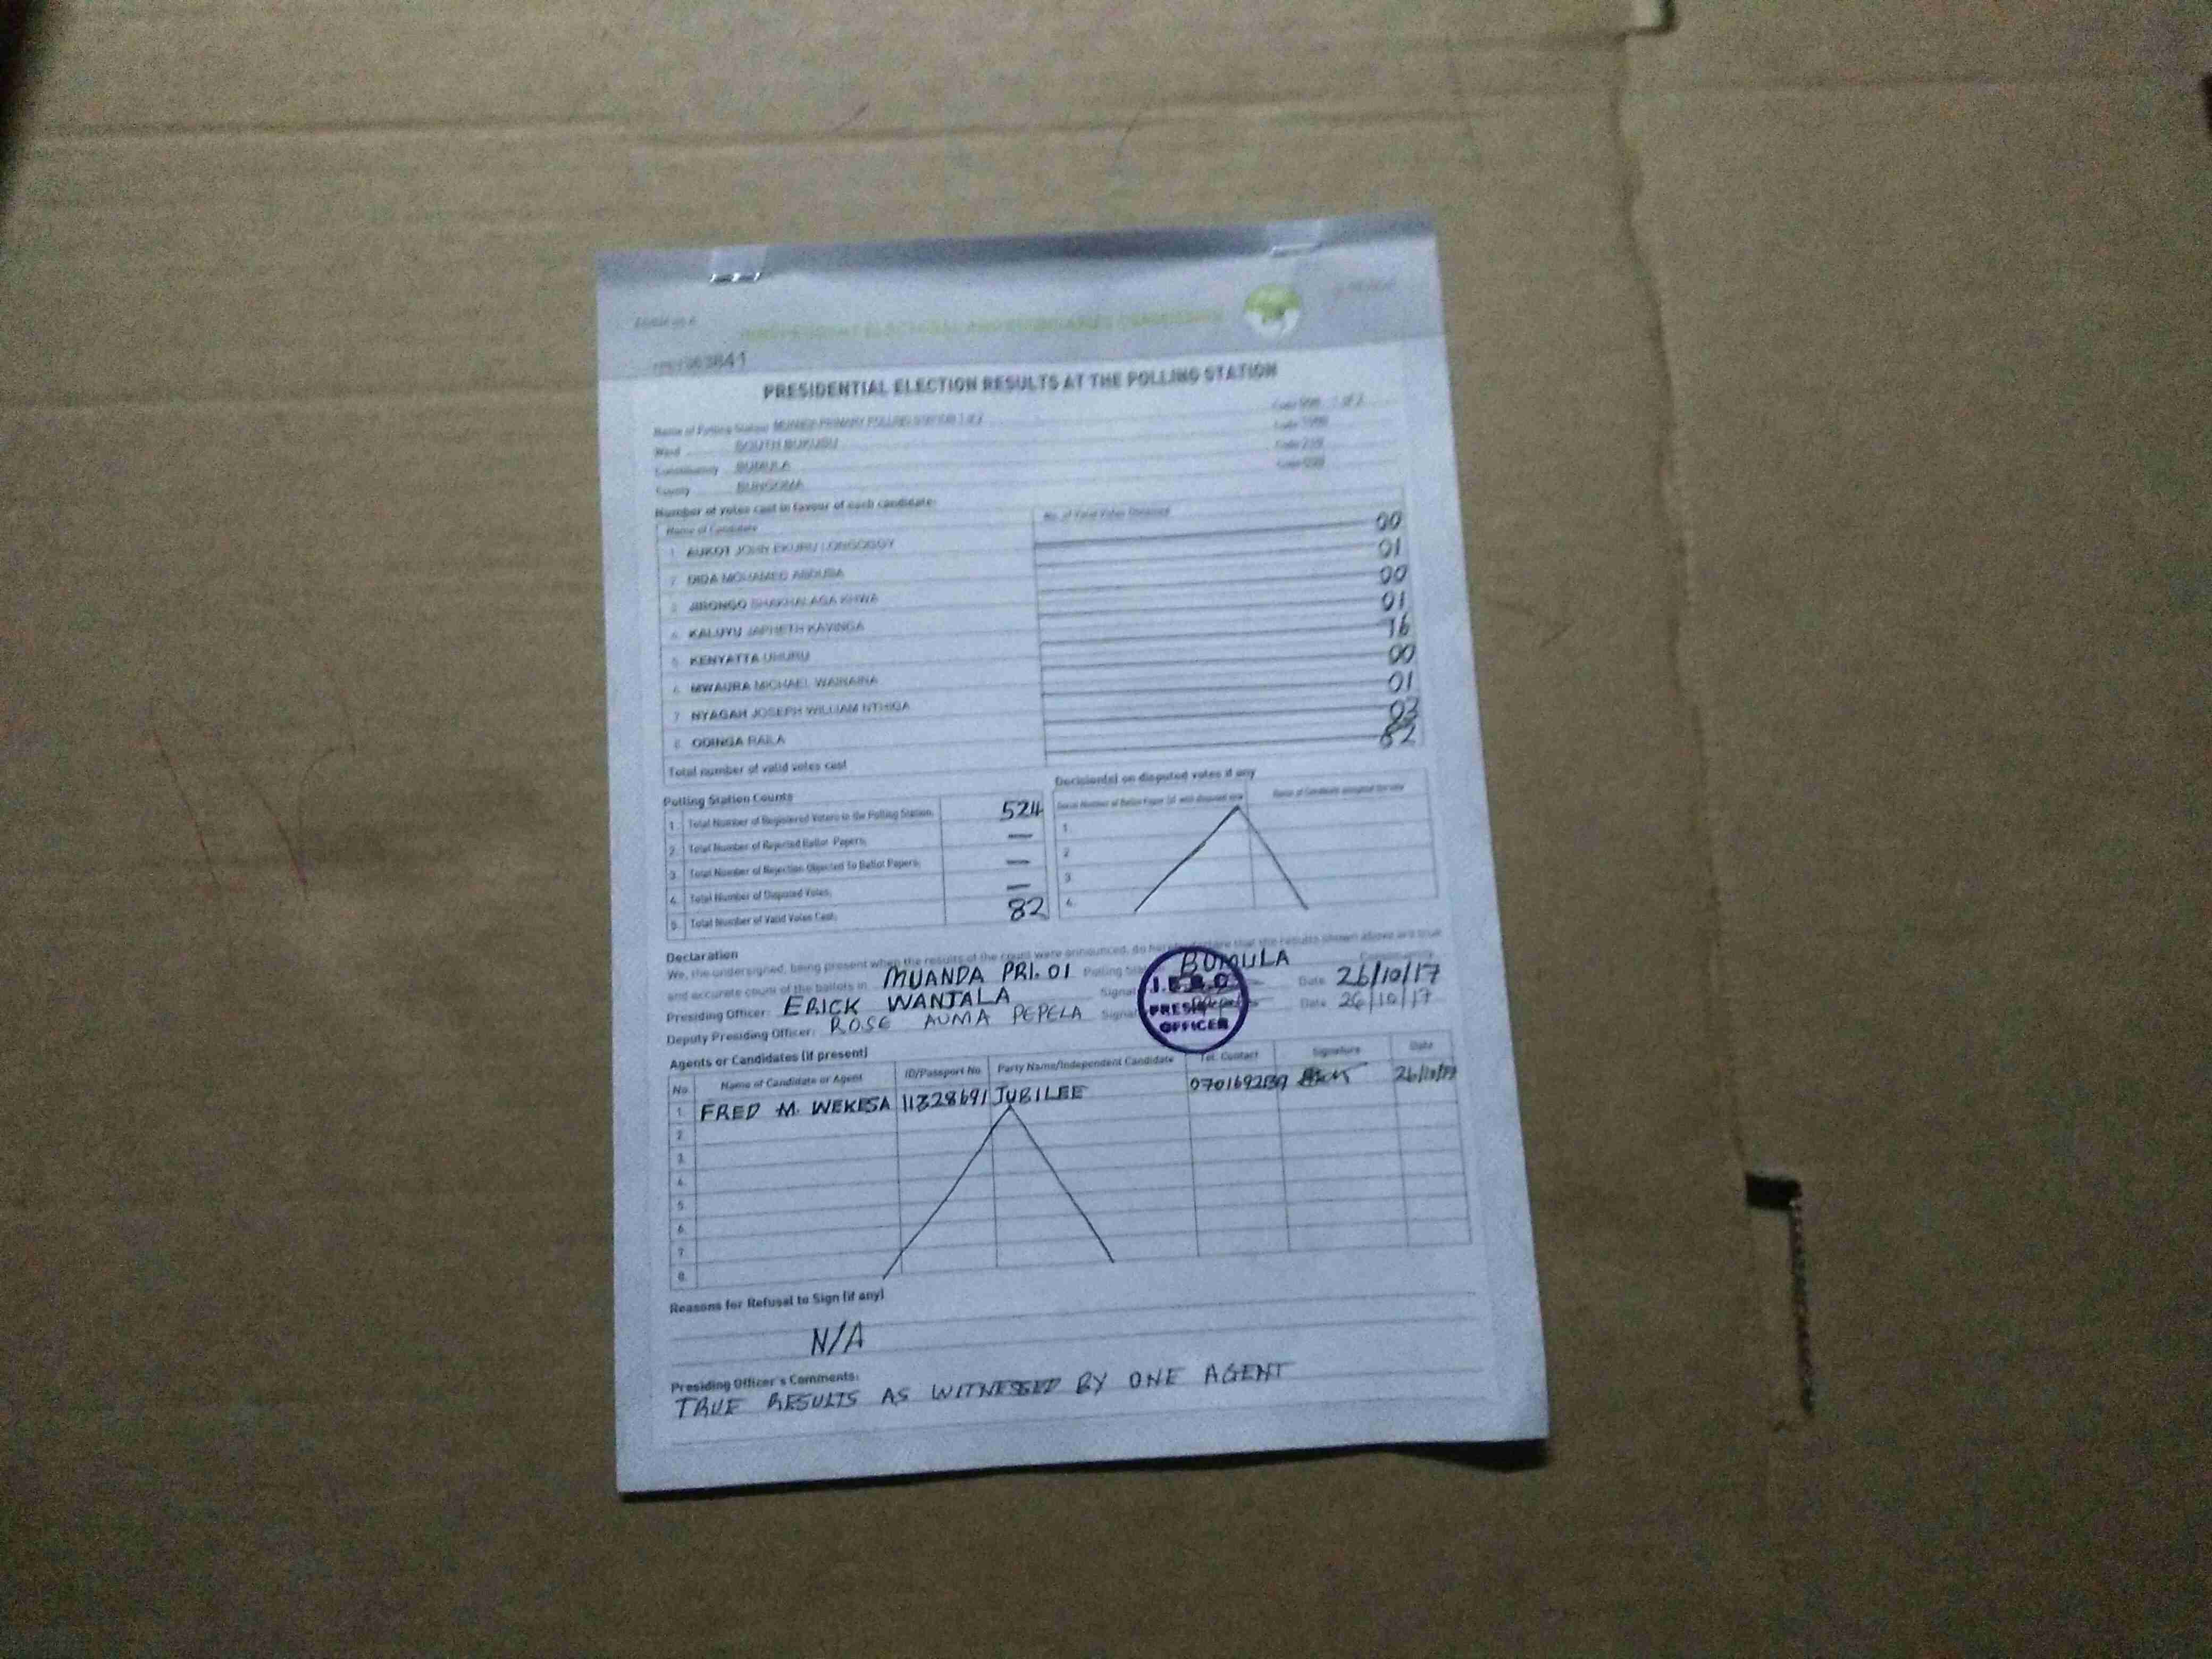 FORM 34A
INDEPENDENT ELECTORAL AND BOUNDARIES COMMISSION
PRESIDENTIAL ELECTION RESULTS AT THE POLLING STATION
Name of Polling Station PRIMARY POLLING STATION 1 of 2
Ward SOUTH BUKUSU
Constituency BUMULA
County BUNGOMA
Number of votes cast in favour of each candidate:
Name of Candidate No. of Valid Votes Obtained
1. AUKOT JOHN EKURU LONGOGGY 00
2. DIDA MOHAMED ABDUBA 01
3. JIRONGO SHAKHALAGA KHWA 00
4. KALUYU JAPHETH KAVINGA 01
5. KENYATTA UHURU 76
6. MWAURA MICHAEL WAINAINA 00
7. NYAGAH JOSEPH WILLIAM NTHIGA 01
8. ODINGA RAILA 03
Total number of valid votes cast 82
Polling Station Counts
1. Total Number of Registered Voters in the Polling Station; 524
2. Total Number of Rejected Ballot Papers; —
3. Total Number of Rejection Objected To Ballot Papers; —
4. Total Number of Disputed Votes; —
5. Total Number of Valid Votes Cast; 82
Decision(s) on disputed votes if any
1.
2.
3.
4.
Declaration
We, the undersigned, being present when the results of the count were announced, do hereby declare that the results shown above are true
and accurate count of the ballots in MUANDA PRI. 01 Polling BUMULA Constituency
Presiding Officer: ERICK WANJALA Signat Date 26/10/17
Deputy Presiding Officer: ROSE AUMA PEPELA Signat Date 26/10/17
I.E.B.C
PRESIDING
OFFICER
Agents or Candidates (if present)
No. Name of Candidate or Agent ID/Passport No Party Name/Independent Candidate Tel. Contact Signature Date
1. FRED M. WEKESA 11328691 JUBILEE 26/10/17
2.
3.
4.
5.
6.
7.
8.
Reasons for Refusal to Sign (if any)
N/A
Presiding Officer's Comments:
TRUE RESULTS AS WITNESSED BY ONE AGENT